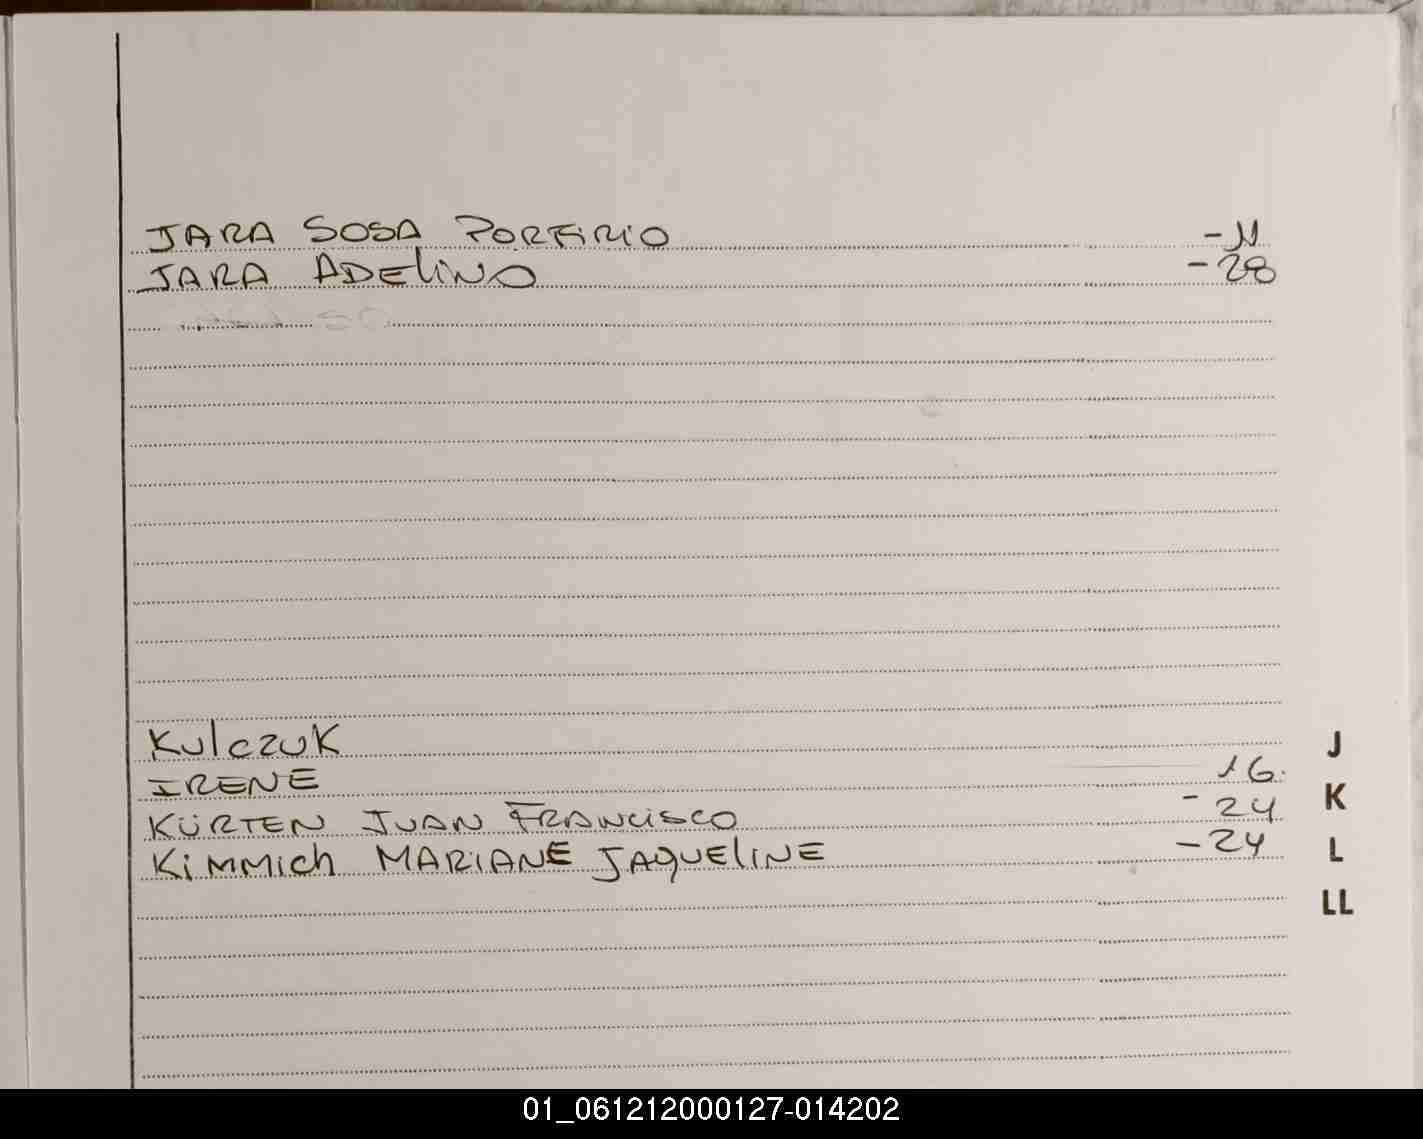 JARA SOSA PORFIRIO - 11
JARA ADELINO - 28
KULCZUK
IRENE 16
KÜRTEN JUAN FRANCISCO - 24
KIMMICH MARIANE JAQUELINE - 24
J
K
L
LL
01_061212000127-014202